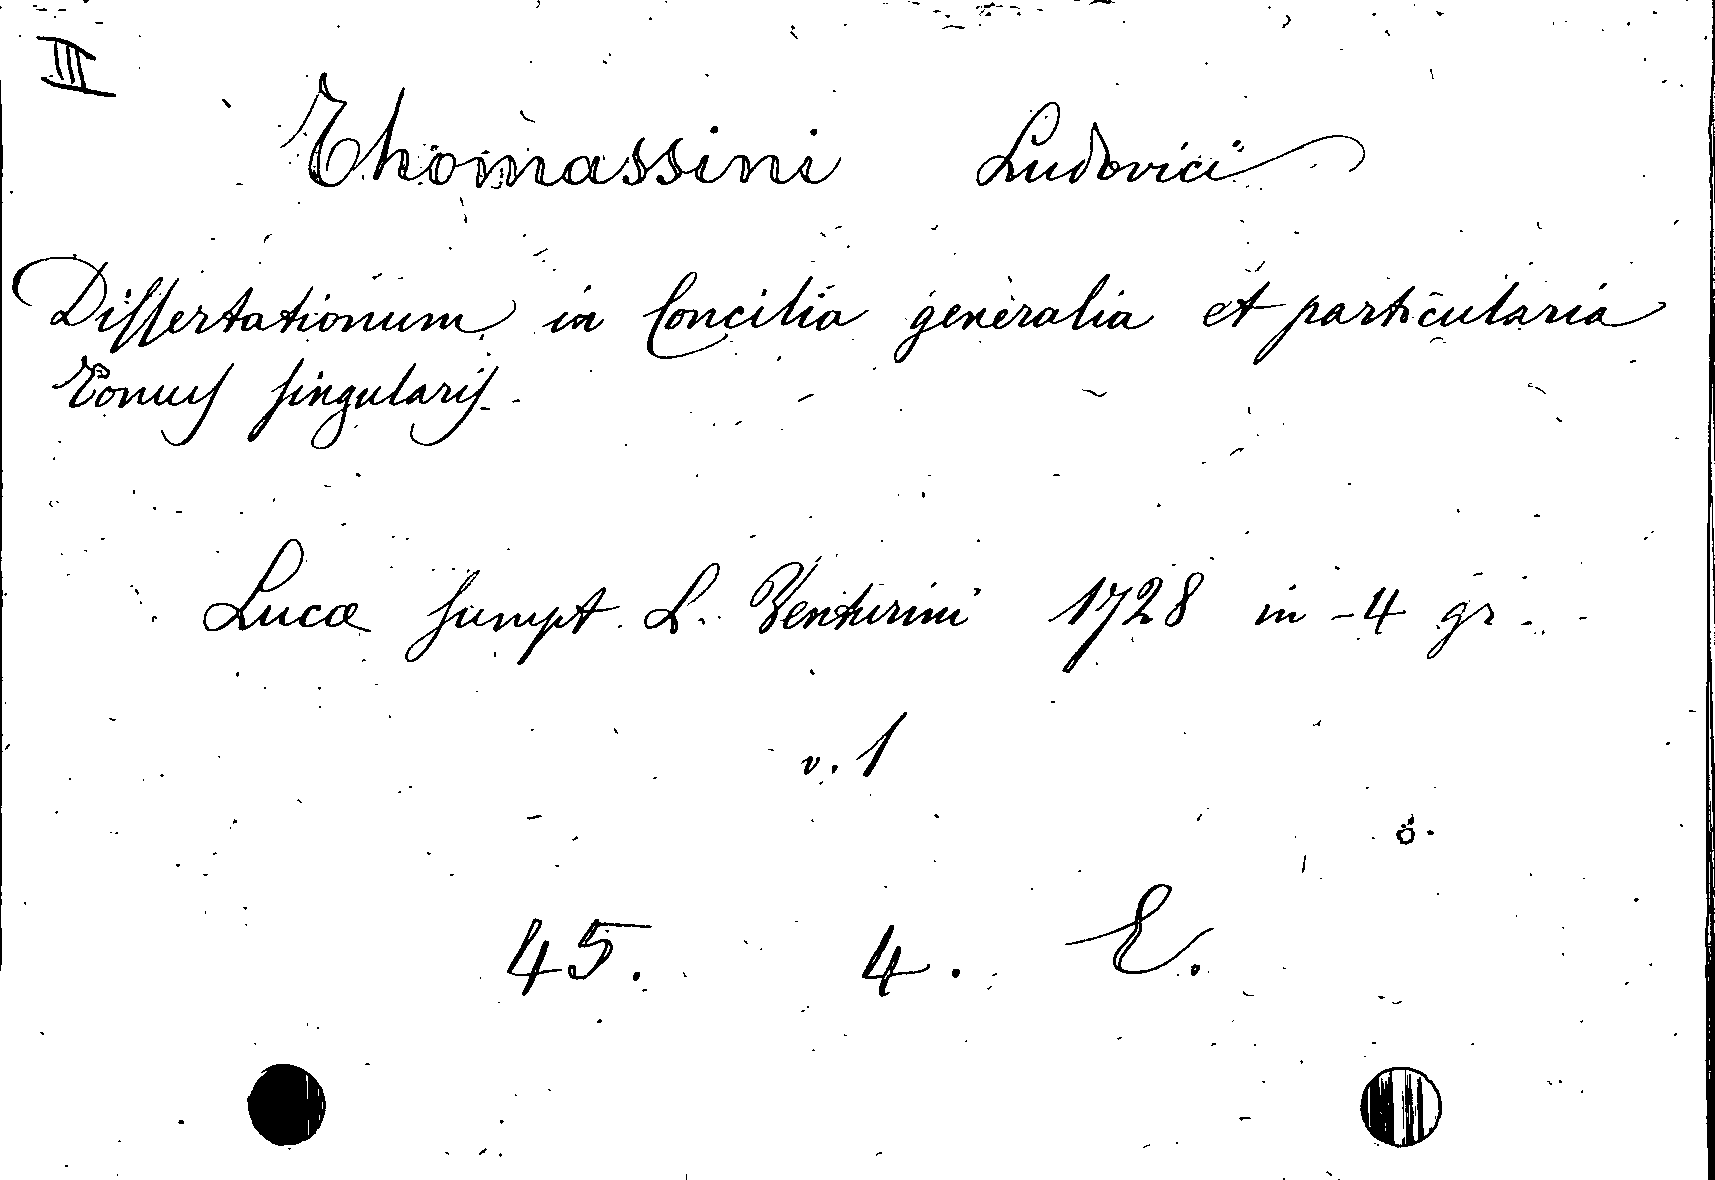 III
Thomassini Ludovici
Dissertationum in Concilia generalia et particularia
Tomus singularis.
Lucæ sumpt. L. Venturini 1728 in-4 gr.
v. 1
45. 4. E.